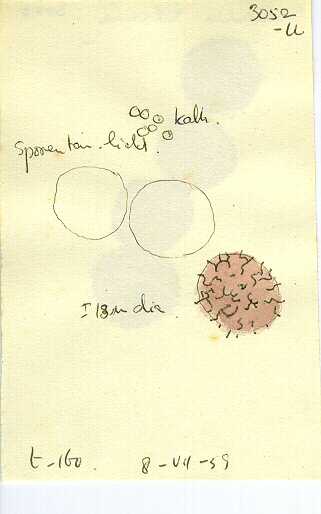 3052
-U
kalk.
Sporen tan-licht.
± 18 u dia.
t-160.
8-VII-59